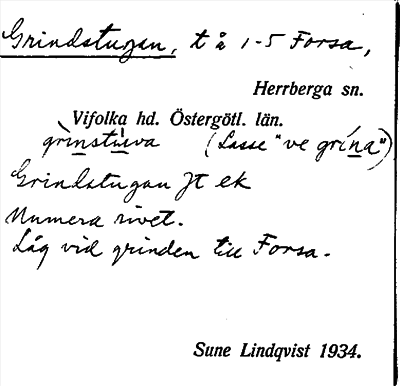 Grindstugan, t å 1-5 Forsa,
Herrberga sn.
Vifolka hd. Östergötl. län.
grinstuva (Lasse "ve grína")
Grindstugan Jt ek
Numera rivet.
Låg vid grinden till Forsa.
Sune Lindqvist 1934.